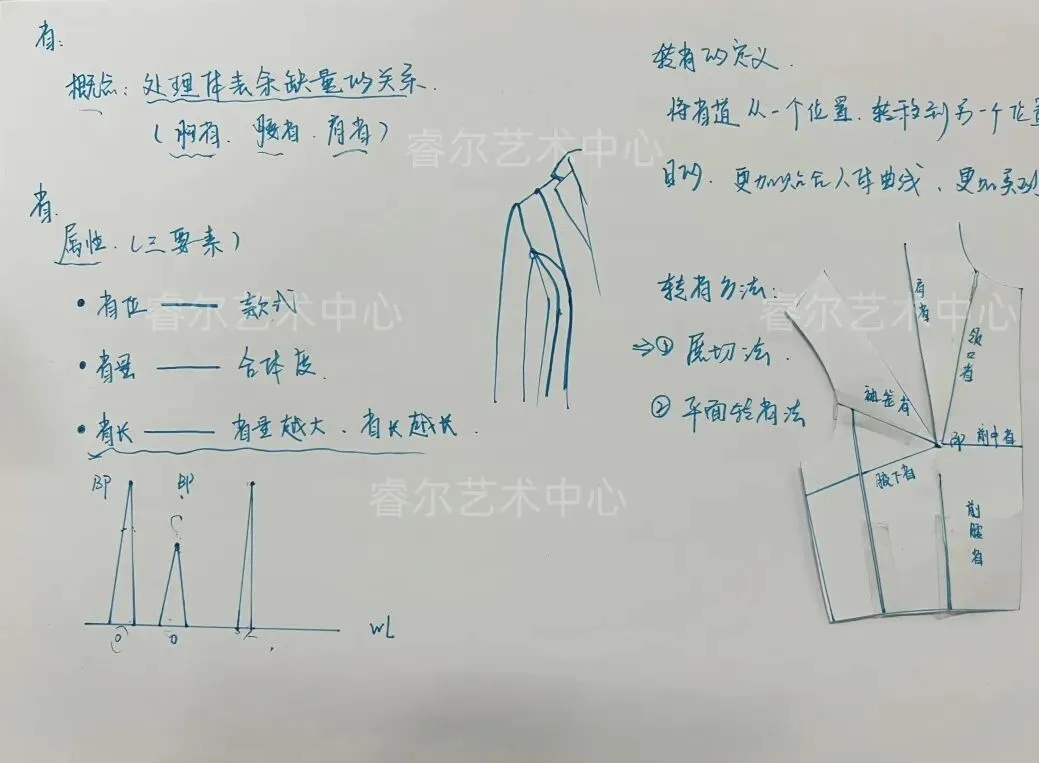 省:
概念: 处理体表余缺量的关系.
(胸省. 腰省. 肩省)
省.
属性.(三要素)
• 省位 —— 款式
• 省量 —— 合体度.
• 省长 —— 省量越大、省长越长.
BP
BP
WL
转省的定义.
将省道从一个位置.转移到另一个位置
目的. 更加贴合人体曲线、更加美观
转省方法:
⇒① 展切法.
② 平面转省法
肩省
领口省
袖笼省
BP 前中省
腋下省
前腰省
睿尔艺术中心
睿尔艺术中心
睿尔艺术中心
睿尔艺术中心